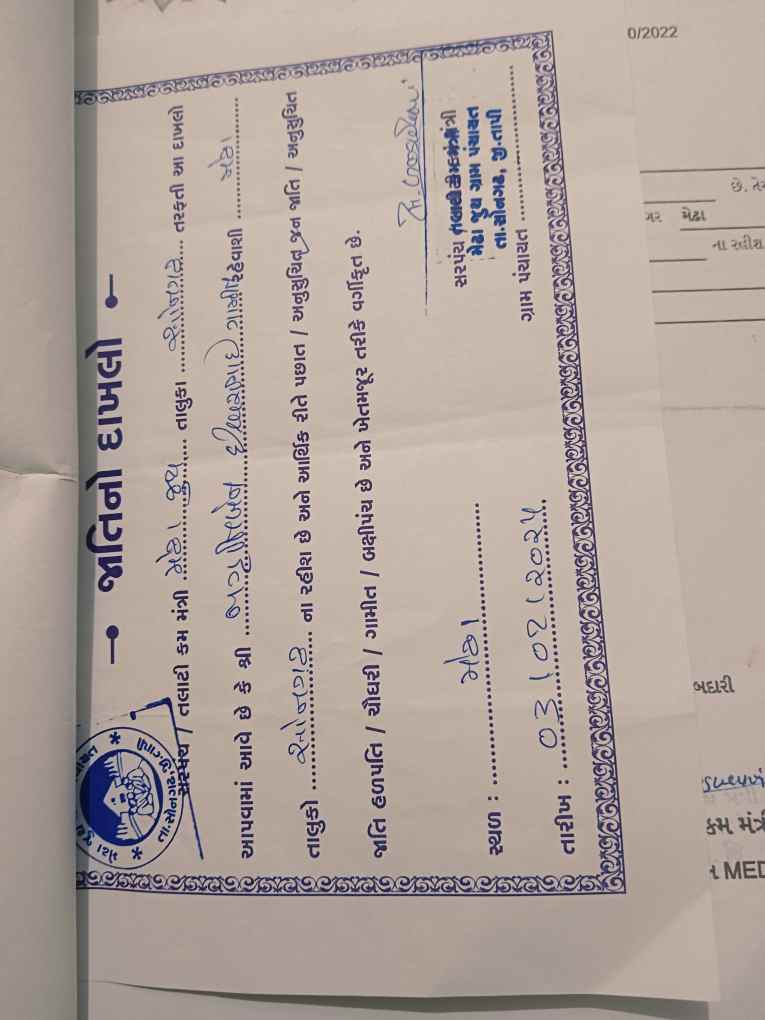 જાતિનો દાખલો
સરપંચ / તલાટી કમ મંત્રી મેઢા જુથ તાલુકા સોનગઢ તરફતી આ દાખલો
આપવામાં આવે છે કે શ્રી ગામીત રહેવાશી મેઢા
તાલુકો સોનગઢ ના રહીશ છે અને આર્થિક રીતે પછાત / અનુસુચિત જન જાતિ / અનુસુચિત
જાતિ હળપતિ / ચૌધરી / ગામીત / બક્ષીપંચ છે અને ખેતમજૂર તરીકે વર્ગીકૃત છે.
સ્થળ : મેઢા
તારીખ : 03/02/2025.
સરપંચ તલાટી કમ મંત્રી
મેઢા જુથ ગ્રામ પંચાયત
તા.સોનગઢ, જી.તાપી
ગ્રામ પંચાયત
તા.સોનગઢ, જી.તાપી
0/2022
છે. તેમ
ગર મેઢા
ના રહીશ
બદારી
કમ મંત્રી
MED